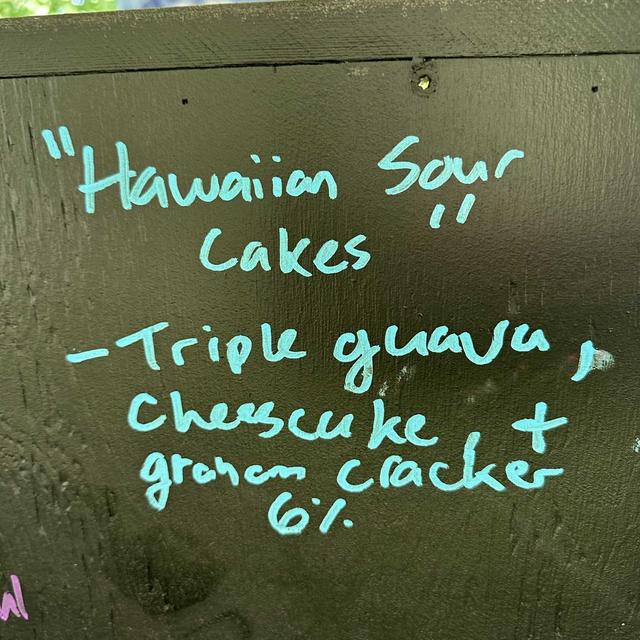 "Hawaiian Sour
Cakes"
- Triple guava,
Cheescake, +
graham cracker
6%